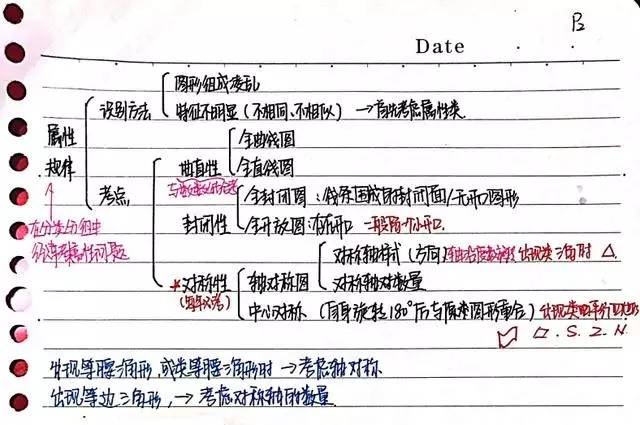 P2
Date
图形组成凌乱
识别方法
特征不明显（不相同、不相似）→首先考虑属性类
属性
规律
全曲线图
曲直性
全直线图
考点
全封闭图：线条围成的封闭面/无开口图形
封闭性
全开放图：有开口 一般留一个小开口.
在分类分组中
对称轴样式（方向） 出现类三角时 △.
*对称性
轴对称图
对称轴对数量
中心对称（自身旋转180°后与原来图形重合）
▱.S.Z.N.
出现等腰三角形,或类等腰三角形时→考虑轴对称
出现等边三角形,→考虑对称轴的数量